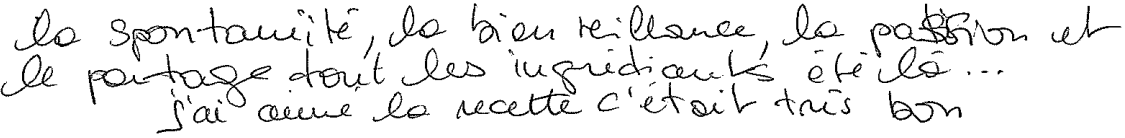 la spontanéité, la bienveillance, la passion et
le partage tout les ingrédiants été là...
j'ai aimé la recette c'était très bon